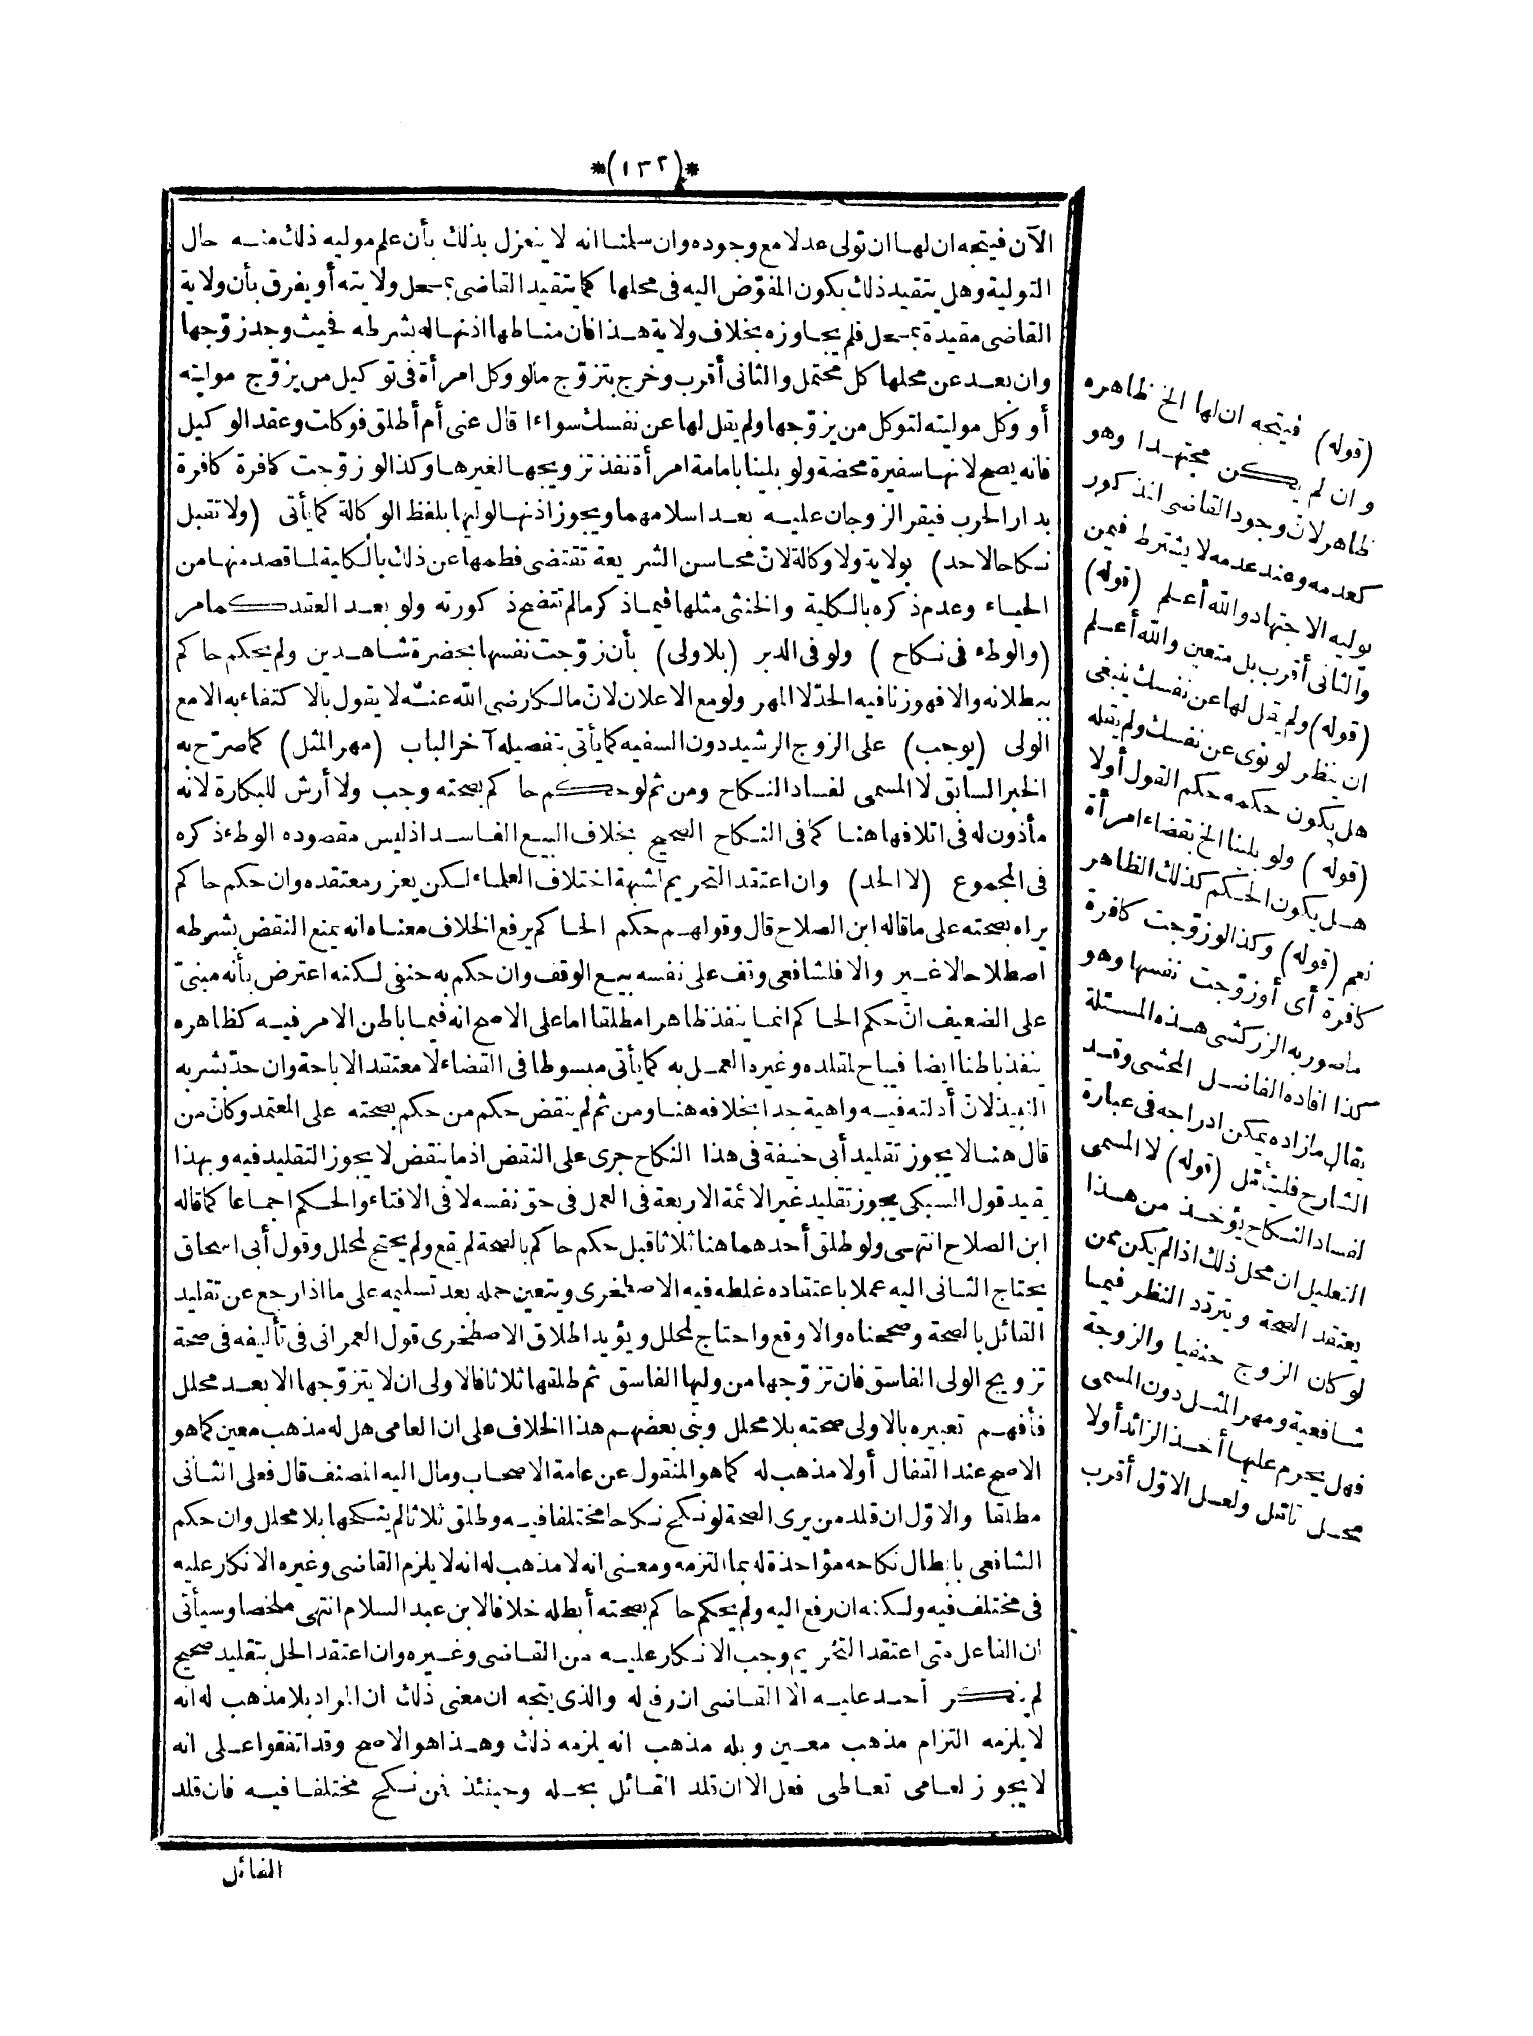 *(١٣٢)*
الآن فيتجه ان لها ان تولى عدلا مع وجوده وان سلمنا انه لا ينعزل بذلك بأن علم موليه ذلك منه حال
التولية وهل يتقيد ذلك بكون المفوّض اليه فى محلها كما يتقيد القاضى بمحل ولايته أو يفرق بأن ولاية
القاضى مقيدة بمحل فلم يجاوزه بخلاف ولاية هذا فان مناطها اذنها له بشرطه فحيث وجد زوّجها
وان بعد عن محلها كل محتمل والثانى أقرب وخرج بتزوّج مالو وكل امرأة فى توكيل من يزوّج موليته
أو وكل موليته لتوكل من يزوّجها ولم يقل لها عن نفسك سواء اقال عنى أم أطلق فوكلت وعقد الوكيل
فانه يصح لانها سفيرة محضة ولو بلينا بامامة امرأة نفذ تزويجها لغيرها وكذا لو زوّجت كافرة كافرة
بدار الحرب فيقر الزوجان عليه بعد اسلامهما ويجوز اذنها لوليها بلفظ الوكالة كما يأتى (ولا تقبل
نكاحا لاحد) بولاية ولا وكالة لانّ محاسن الشريعة تقتضى فطمها عن ذلك بالكلية لما قصد منها من
الحياء وعدم ذكره بالكلية والخنثى مثلها فيما ذكر مالم تتضح ذكورته ولو بعد العقد كما مر
(والوطء فى نكاح) ولو فى الدبر (بلا ولى) بأن زوّجت نفسها بحضرة شاهدين ولم يحكم حاكم
ببطلانه والا فهو زنا فيه الحدّ لا المهر ولو مع الاعلان لانّ مالكا رضى الله عنه لا يقول بالاكتفاء به الا مع
الولى (يوجب) على الزوج الرشيد دون السفيه كما يأتى بتفصيله آخر الباب (مهر المثل) كما صرّح به
الخبر السابق لا المسمى لفساد النكاح ومن ثم لو حكم حاكم بصحته وجب ولا أرش للبكارة لانه
مأذون له فى اتلافها هنا كما فى النكاح الصحيح بخلاف البيع الفاسد اذ ليس مقصوده الوطء ذكره
فى المجموع (لا الحد) وان اعتقد التحريم لشبهة اختلاف العلماء لكن يعزر معتقده وان حكم حاكم
يراه بصحته على ما قاله ابن الصلاح قال وقولهم حكم الحاكم يرفع الخلاف معناه انه يمنع النقض بشرطه
اصطلاحا لا غير والا فلشافعى وقف على نفسه بيع الوقف وان حكم به حنفى لكنه اعترض بأنه مبنىّ
على الضعيف انّ حكم الحاكم انما ينفذ ظاهرا مطلقا اما على الاصح انه فيما باطن الامر فيه كظاهره
ينفذ باطنا ايضا فيباح لمقلده وغيره العمل به كما يأتى مبسوطا فى القضاء لا معتقد الاباحة وان حدّ بشربه
النبيذ لانّ أدلته فيه واهية جدا بخلافه هنا ومن ثم لم ينقض حكم من حكم بصحته على المعتمد وكان من
قال هنا لا يجوز تقليد أبى حنيفة فى هذا النكاح جرى على النقض اذ ما ينقض لا يجوز التقليد فيه وبهذا
يقيد قول السبكى يجوز تقليد غير الائمة الاربعة فى العمل فى حق نفسه لا فى الافتاء والحكم اجماعا كما قاله
ابن الصلاح انتهى ولو طلق أحدهما هنا ثلاثا قبل حكم حاكم بالصحة لم يقع ولم يحتج لمحلل وقول أبى اسحاق
يحتاج الثانى اليه عملا باعتقاده غلطه فيه الاصطخرى ويتعين حمله بعد تسليمه على ما اذا رجع عن تقليد
القائل بالصحة وصححناه والا وقع واحتاج لمحلل ويؤيد اطلاق الاصطخرى قول العمرانى فى تأليفه فى صحة
تزويج الولى الفاسق فان تزوّجها من وليها الفاسق ثم طلقها ثلاثا فالاولى ان لا يتزوّجها الا بعد محلل
فأفهم تعبيره بالاولى صحته بلا محلل وبنى بعضهم هذا الخلاف على ان العامى هل له مذهب معين كما هو
الاصح عند القفال أولا مذهب له كما هو المنقول عن عامة الاصحاب ومال اليه المصنف قال فعلى الثانى
مطلقا والاوّل ان قلد من يرى الصحة لو نكح نكاحا مختلفا فيه وطلق ثلاثا لم ينكحها بلا محلل وان حكم
الشافعى بابطال نكاحه مؤاخذة له بما التزمه ومعنى انه لا مذهب له انه لا يلزم القاضى وغيره الانكار عليه
فى مختلف فيه ولكنه ان رفع اليه ولم يحكم حاكم بصحته أبطله خلافا لابن عبد السلام انتهى ملخصا وسيأتى
ان الفاعل متى اعتقد التحريم وجب الانكار عليه من القاضى وغيره وان اعتقد الحل بتقليد صحيح
لم ينكر أحد عليه الا القاضى ان رفع له والذى يتجه ان معنى ذلك ان المراد بلا مذهب له انه
لا يلزمه التزام مذهب معين وبله مذهب انه يلزمه ذلك وهذا هو الاصح وقد اتفقوا على انه
لا يجوز لعامى تعاطى فعل الا ان قلد القائل بحله وحينئذ فمن نكح مختلفا فيه فان قلد
القائل
(قوله) فيتجه ان لها الخ ظاهره
وان لم يكن مجتهدا وهو
ظاهر لانّ وجود القاضى المذكور
كعدمه وعند عدمه لا يشترط فيمن
يوليه الاجتهاد والله أعلم (قوله)
والثانى أقرب بل متعين والله أعلم
(قوله) ولم يقل لها عن نفسك ينبغى
ان ينظر لو نوى عن نفسك ولم يقله
هل يكون حكمه حكم القول أولا
(قوله) ولو بلينا الخ بقضاء امرأة
هل يكون الحكم كذلك الظاهر
نعم (قوله) وكذا لو زوّجت كافرة
كافرة أى أو زوّجت نفسها وهو
ما صور به الزركشى هذه المسئلة
كذا افاده الفاضل المحشى وقد
يقال ما زاده يمكن ادراجه فى عبارة
الشارح فليتأمل (قوله) لا المسمى
لفساد النكاح يؤخذ من هذا
التعليل ان محل ذلك اذا لم يكن ممن
يعتقد الصحة ويتردّد النظر فيما
لو كان الزوج حنفيا والزوجة
شافعية ومهر المثل دون المسمى
فهل يحرم عليها أخذ الزائد أولا
محل تأمّل ولعل الاوّل أقرب